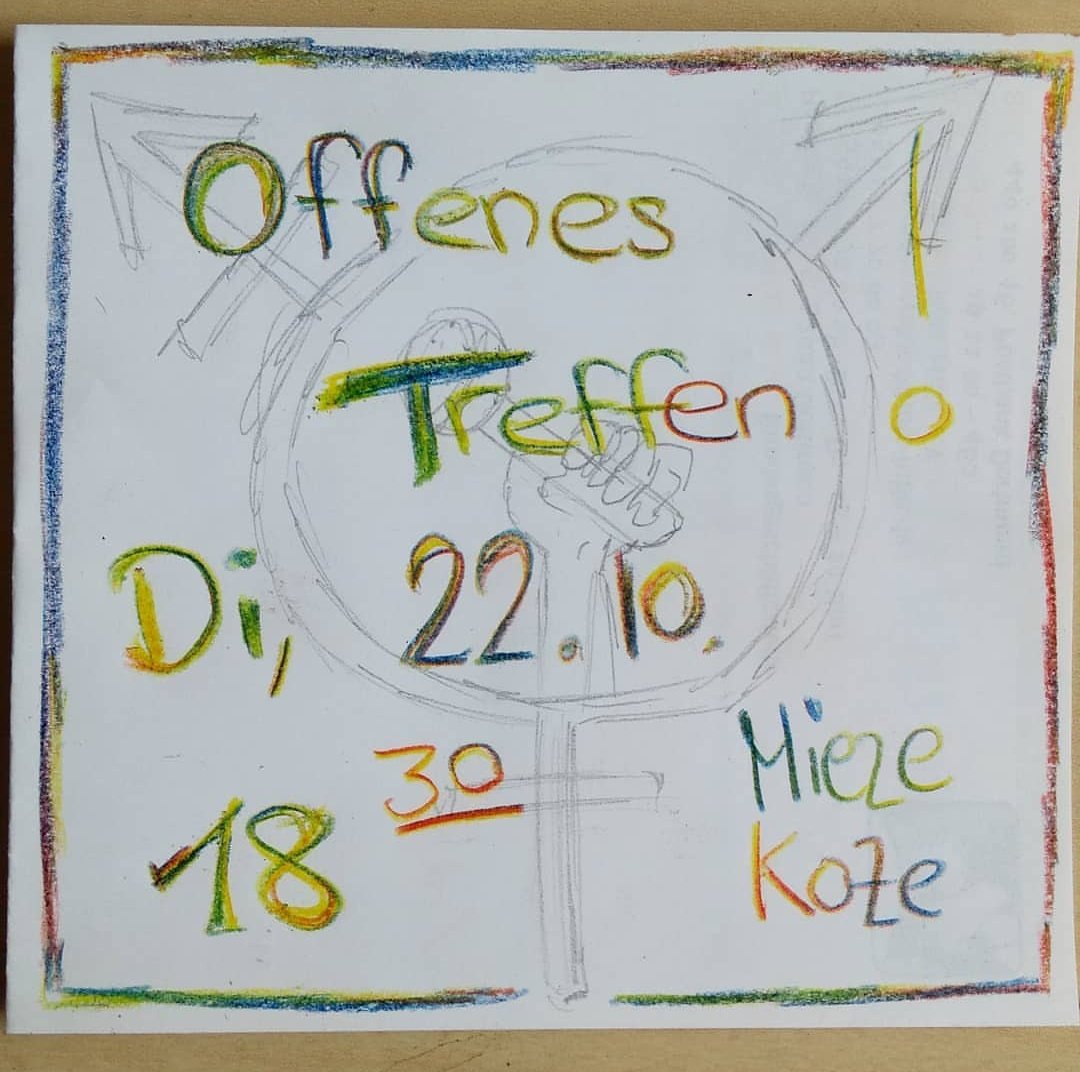 Offenes !
Treffen
Di, 22.10.
18 30
Mieze
Koze